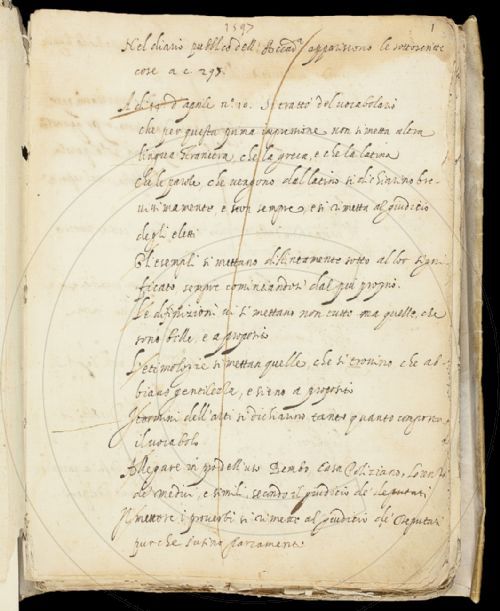 1597
1
Nel diario pubblico dell' Accad.ª appariscono le sottoscritte
cose a c. 295.
A di 14 d'aprile nº 10. Si trattò del vocabolario
che per questa prima impressione non si metta altra
lingua straniera, che la greca, e che la latina
che le parole, che vengono dal latino si dichiarino bre-
vissimamente, e non sempre, e si rimetta al giudicio
degli eletti
Gl'esempli si mettano distintamente sotto al lor signi-
ficato sempre cominciandosi dal più propio.
Le difinizioni si mettano non tutte ma quelle, che
sono belle, e a proposito
L'etimologie si mettan quelle, che si trovino, che ab-
biano gentilezza, e sieno a proposito
I termini dell'arti si dichiarino tanto quanto comporta
il vocabolo
Allegare in pro dell'uso Bembo, Casa Poliziano, Lorenzo
de medici, e simili secondo il giudicio de' deputati
Il mettere i proverbi si rimette al giudicio de' deputati
purche si